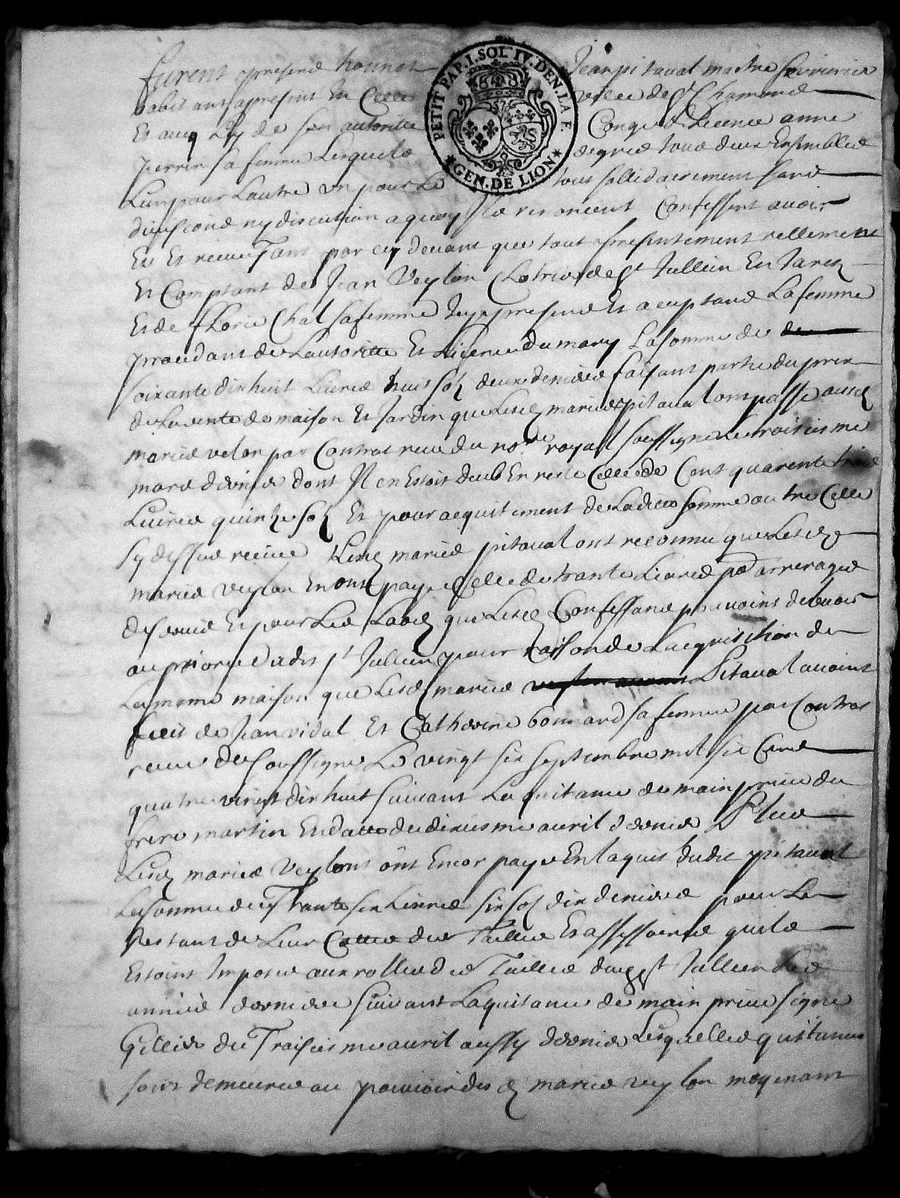 PETIT PAP. I. SOL IV. DEN. LA F.
GEN. DE LION
furent presens honnet Jean pitaval maitre
habitant apresent En Cette ville de St Chamond
Et avec luy de son autorite Congé et licence anne
perrin sa femme lesquels de gré tous deux Ensemble
Lun pour Lautre un pour Le tout sollidairement sans
division ny discution a quoy ils renoncent Confessent avoir
Eu Et receu tant par cy devant que tout presentement reellement
Et Comptant de Jean Veylon de St Jullien En Jarez
Et de florie Chal sa femme icy presens Et aceptans La femme
procedant de Lautorite Et licence du mary La somme de
soixante dix huit Livres huit solz deux deniers faisant partie du prix
de La vente de maison Et Jardin que Lesdz mariés pitaval ont passé ausdz
mariés velon par Contrat receu du nore royal soussigné Le troisiesme
mars dernier dont Il en Estoit deub En reste Celle de Cent quarente trois
Livres quinze solz Et pour aquittement de Ladite somme outre Celle
sy dessus receue Lesdz mariés pitaval ont reconnu que Lesdz
mariés veylon En ont payé Celle de trante Livres pr arrerages
de servis Et pour Les Labz que Lesdz Confessans pouvoins debvoir
au prioré dudit st Jullien pour raison de Lacquisition de
La meme maison que Lesdz mariés Pitaval avoint
faict de Jean vidal Et Catherine bonnard sa femme par Contrat
receu du soussigné Le vingt six septembre mil six Cens
quatre vingt dix huit suivant La quitance de main privée du
frere martin En datte du dixiesme avril dernier Plus
Lesdz mariés Veylont ont Encor payé En Laquit dudit pitaval
La somme de Trante six Livres six solz dix deniers pour Le
restant de Leur Cotte des Tailles Et assessoires quils
Estoint Imposés aux rolles des Tailles dudt st Jullien Les
années dernieres suivant La quitance de main privée signé
Gillier du Troisiesme avril aussy dernier Lesquelles quitances
sont demeurés au pouvoir desdz mariés veylon moyenant